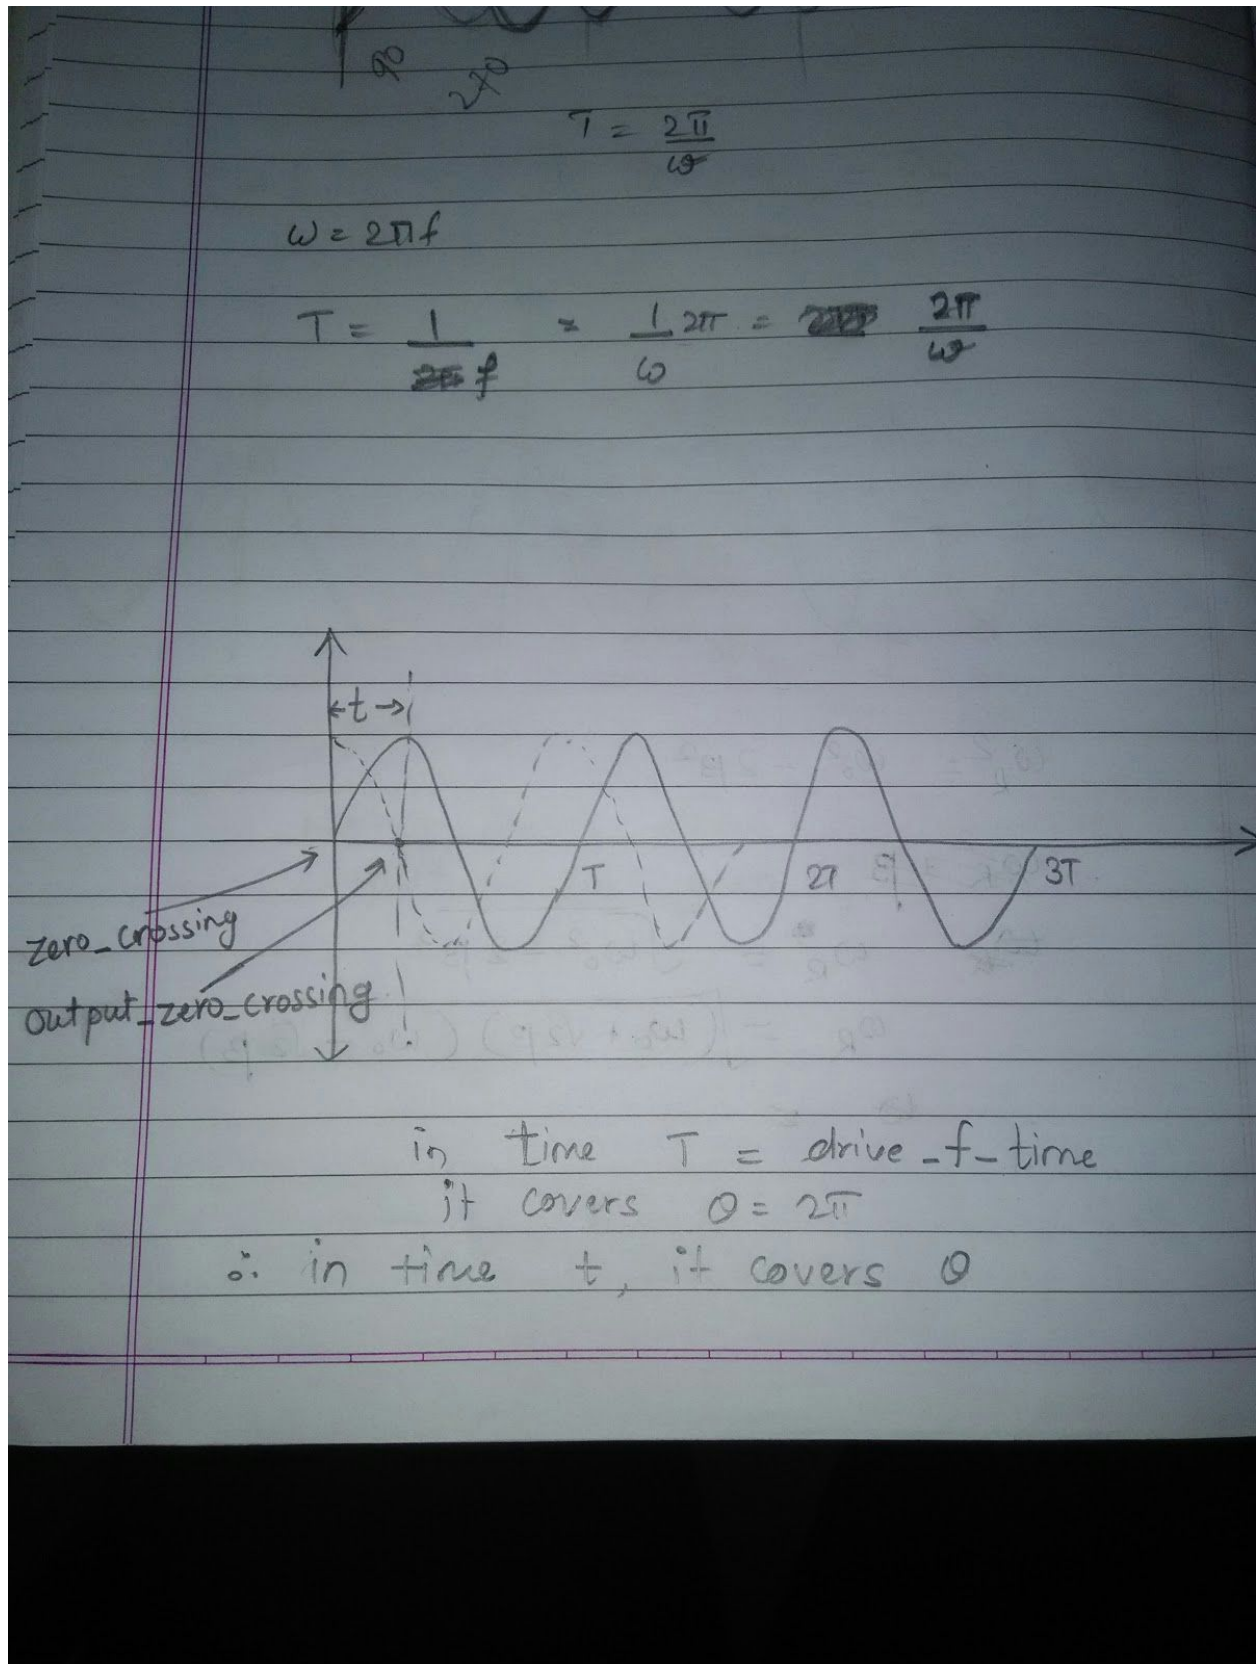 90
270
T = 2π/ω
ω = 2πf
T = 1/f = 1/ω 2π = 2π/ω
←t→
T 2T 3T
zero_crossing
output_zero_crossing
in time T = drive_f_time
it covers θ = 2π
∴ in time t, it covers θ